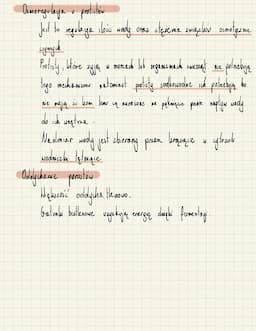 Osmoregulacja u protistów
Jest to regulacja ilości wody oraz stężenia związków osmotycznie
czynnych
Protisty, które żyją w morzach lub organizmach zwierząt nie potrzebują
tego mechanizmu natomiast protisty słodkowodne już potrzebują bo
nie mają ści kom bo są narażone na pęknięcie przez napływ wody
do ich wnętrza.
Nadmiar wody jest zbierany przez krążące w cytozolu
wodniczki tętniące.
Oddychanie protistów
Większość oddycha tlenowo.
Gatunki beztlenowe uzyskują energię dzięki fermentacji.